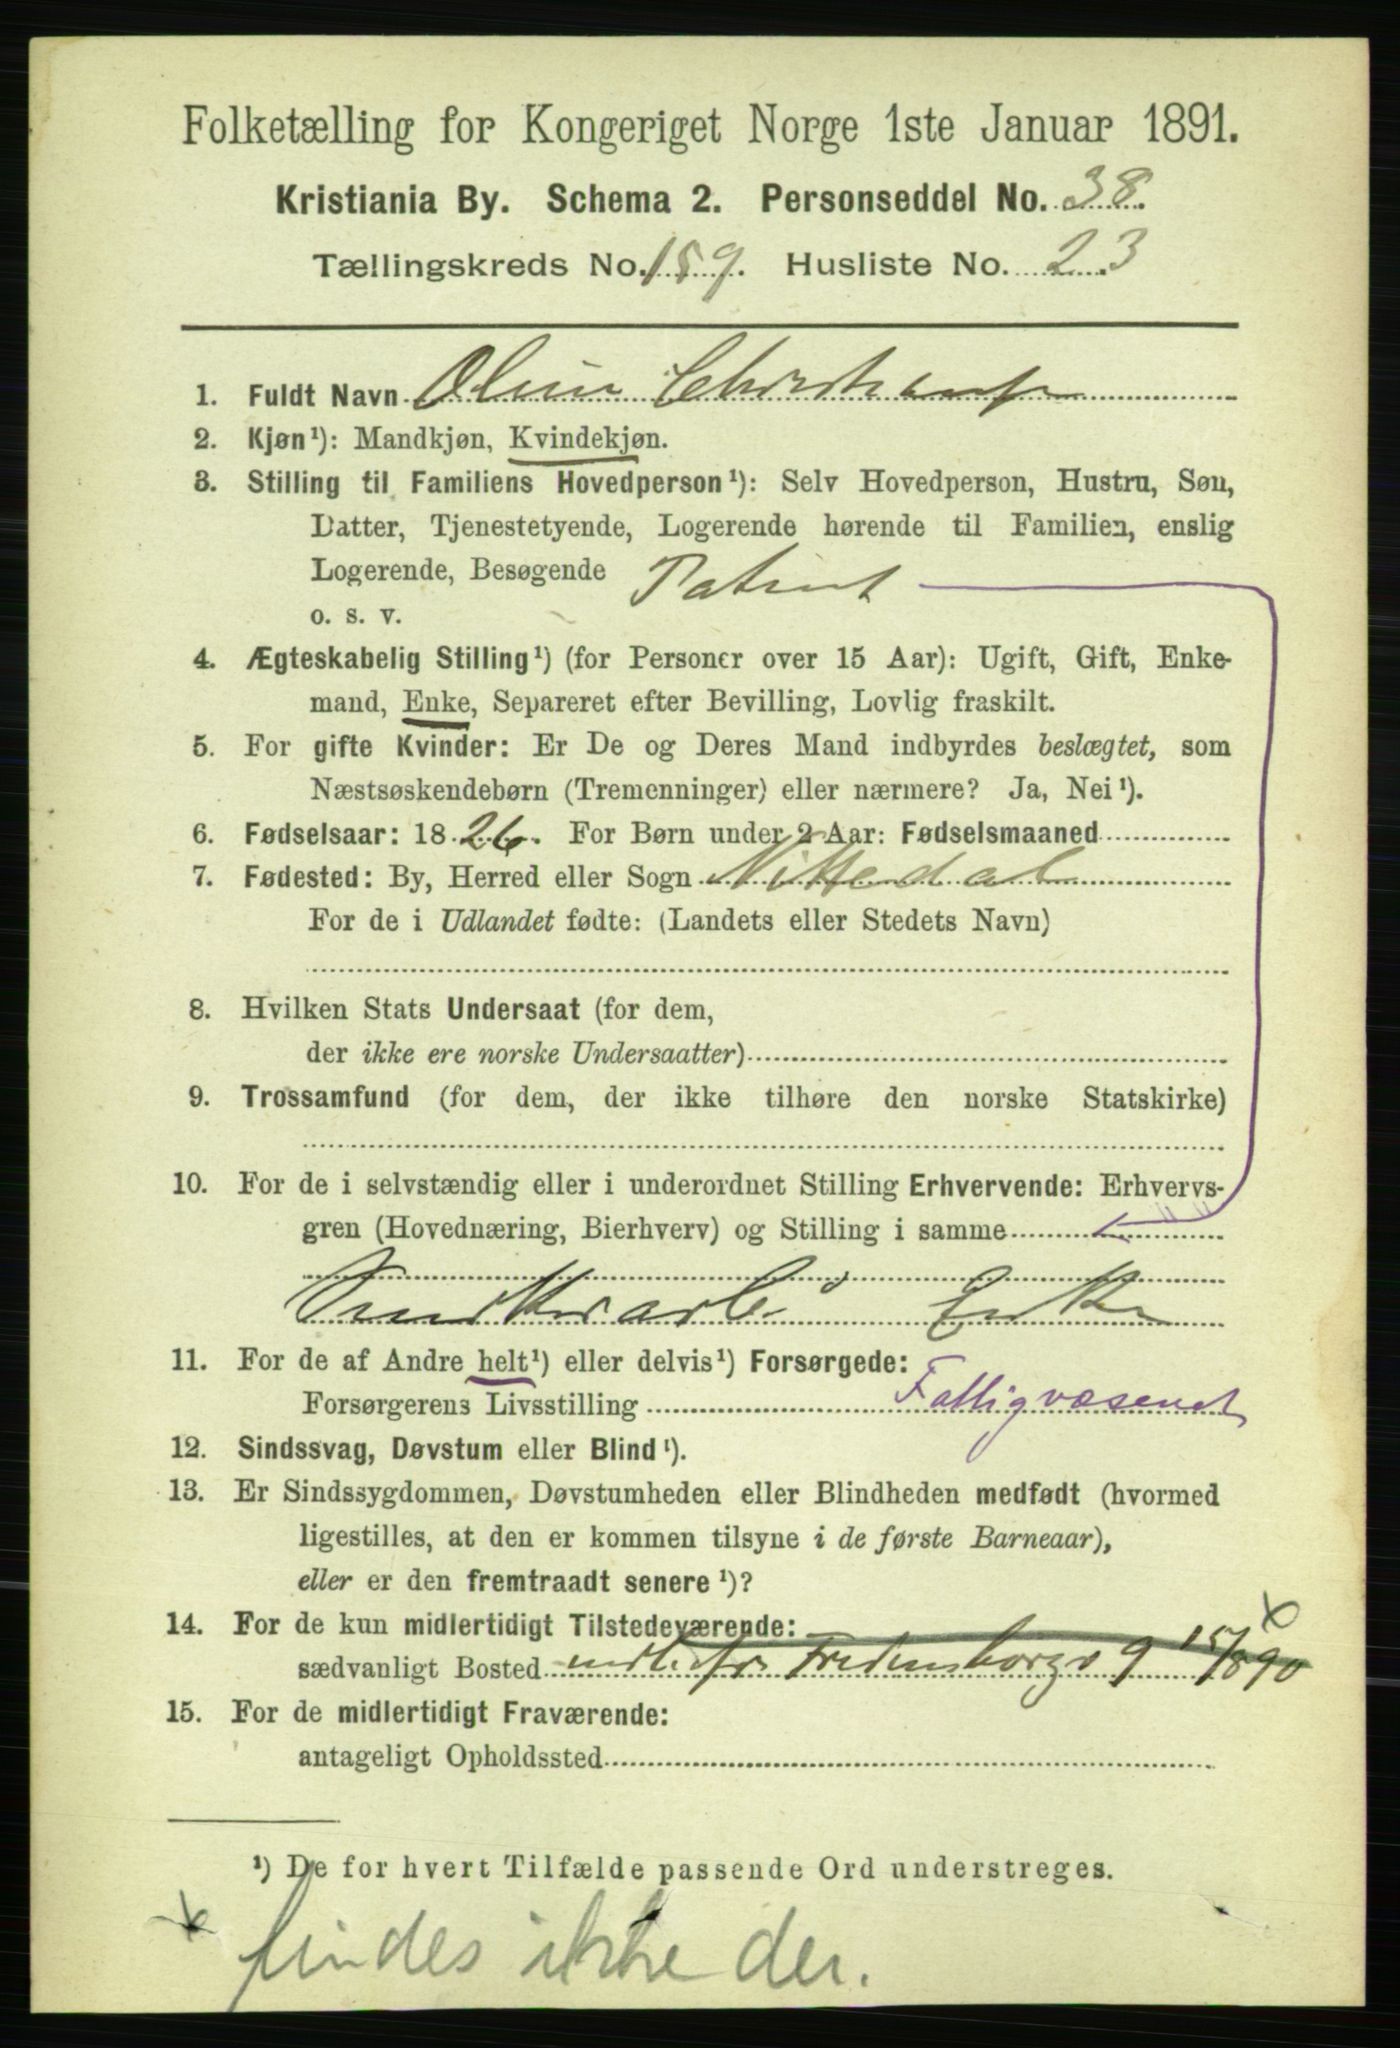 Folketælling for Kongeriget Norge 1ste Januar 1891.
Kristiania By. Schema 2. Personseddel No. 38.
Tællingskreds No. 159. Husliste No. 23
1. Fuldt Navn Oline Christiansen
2. Kjøn¹): Mandkjøn, Kvindekjøn.
3. Stilling til Familiens Hovedperson¹): Selv Hovedperson, Hustru, Søn,
Datter, Tjenestetyende, Logerende hørende til Familien, enslig
Logerende, Besøgende Patient
o. s. v.
4. Ægteskabelig Stilling¹) (for Personer over 15 Aar): Ugift, Gift, Enke-
mand, Enke, Separeret efter Bevilling, Lovlig fraskilt.
5. For gifte Kvinder: Er De og Deres Mand indbyrdes beslægtet, som
Næstsøskendebørn (Tremenninger) eller nærmere? Ja, Nei¹).
6. Fødselsaar: 1826. For Børn under 2 Aar: Fødselsmaaned
7. Fødested: By, Herred eller Sogn Nittedal
For de i Udlandet fødte: (Landets eller Stedets Navn)
8. Hvilken Stats Undersaat (for dem,
der ikke ere norske Undersaatter)
9. Trossamfund (for dem, der ikke tilhøre den norske Statskirke)
10. For de i selvstændig eller i underordnet Stilling Erhvervende: Erhvervs-
gren (Hovednæring, Bierhverv) og Stilling i samme
Enke
11. For de af Andre helt¹) eller delvis¹) Forsørgede:
Forsørgerens Livsstilling Fattigvæsenet
12. Sindssvag, Døvstum eller Blind¹).
13. Er Sindssygdommen, Døvstumheden eller Blindheden medfødt (hvormed
ligestilles, at den er kommen tilsyne i de første Barneaar),
eller er den fremtraadt senere¹)?
14. For de kun midlertidigt Tilstedeværende:
sædvanligt Bosted indl. fra Fredensborgv 9 15/8 90
15. For de midlertidigt Fraværende:
antageligt Opholdssted
¹) De for hvert Tilfælde passende Ord understreges.
x findes ikke der.